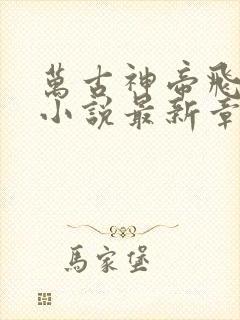 萬古神帝飛
小說最新章
馬家堡